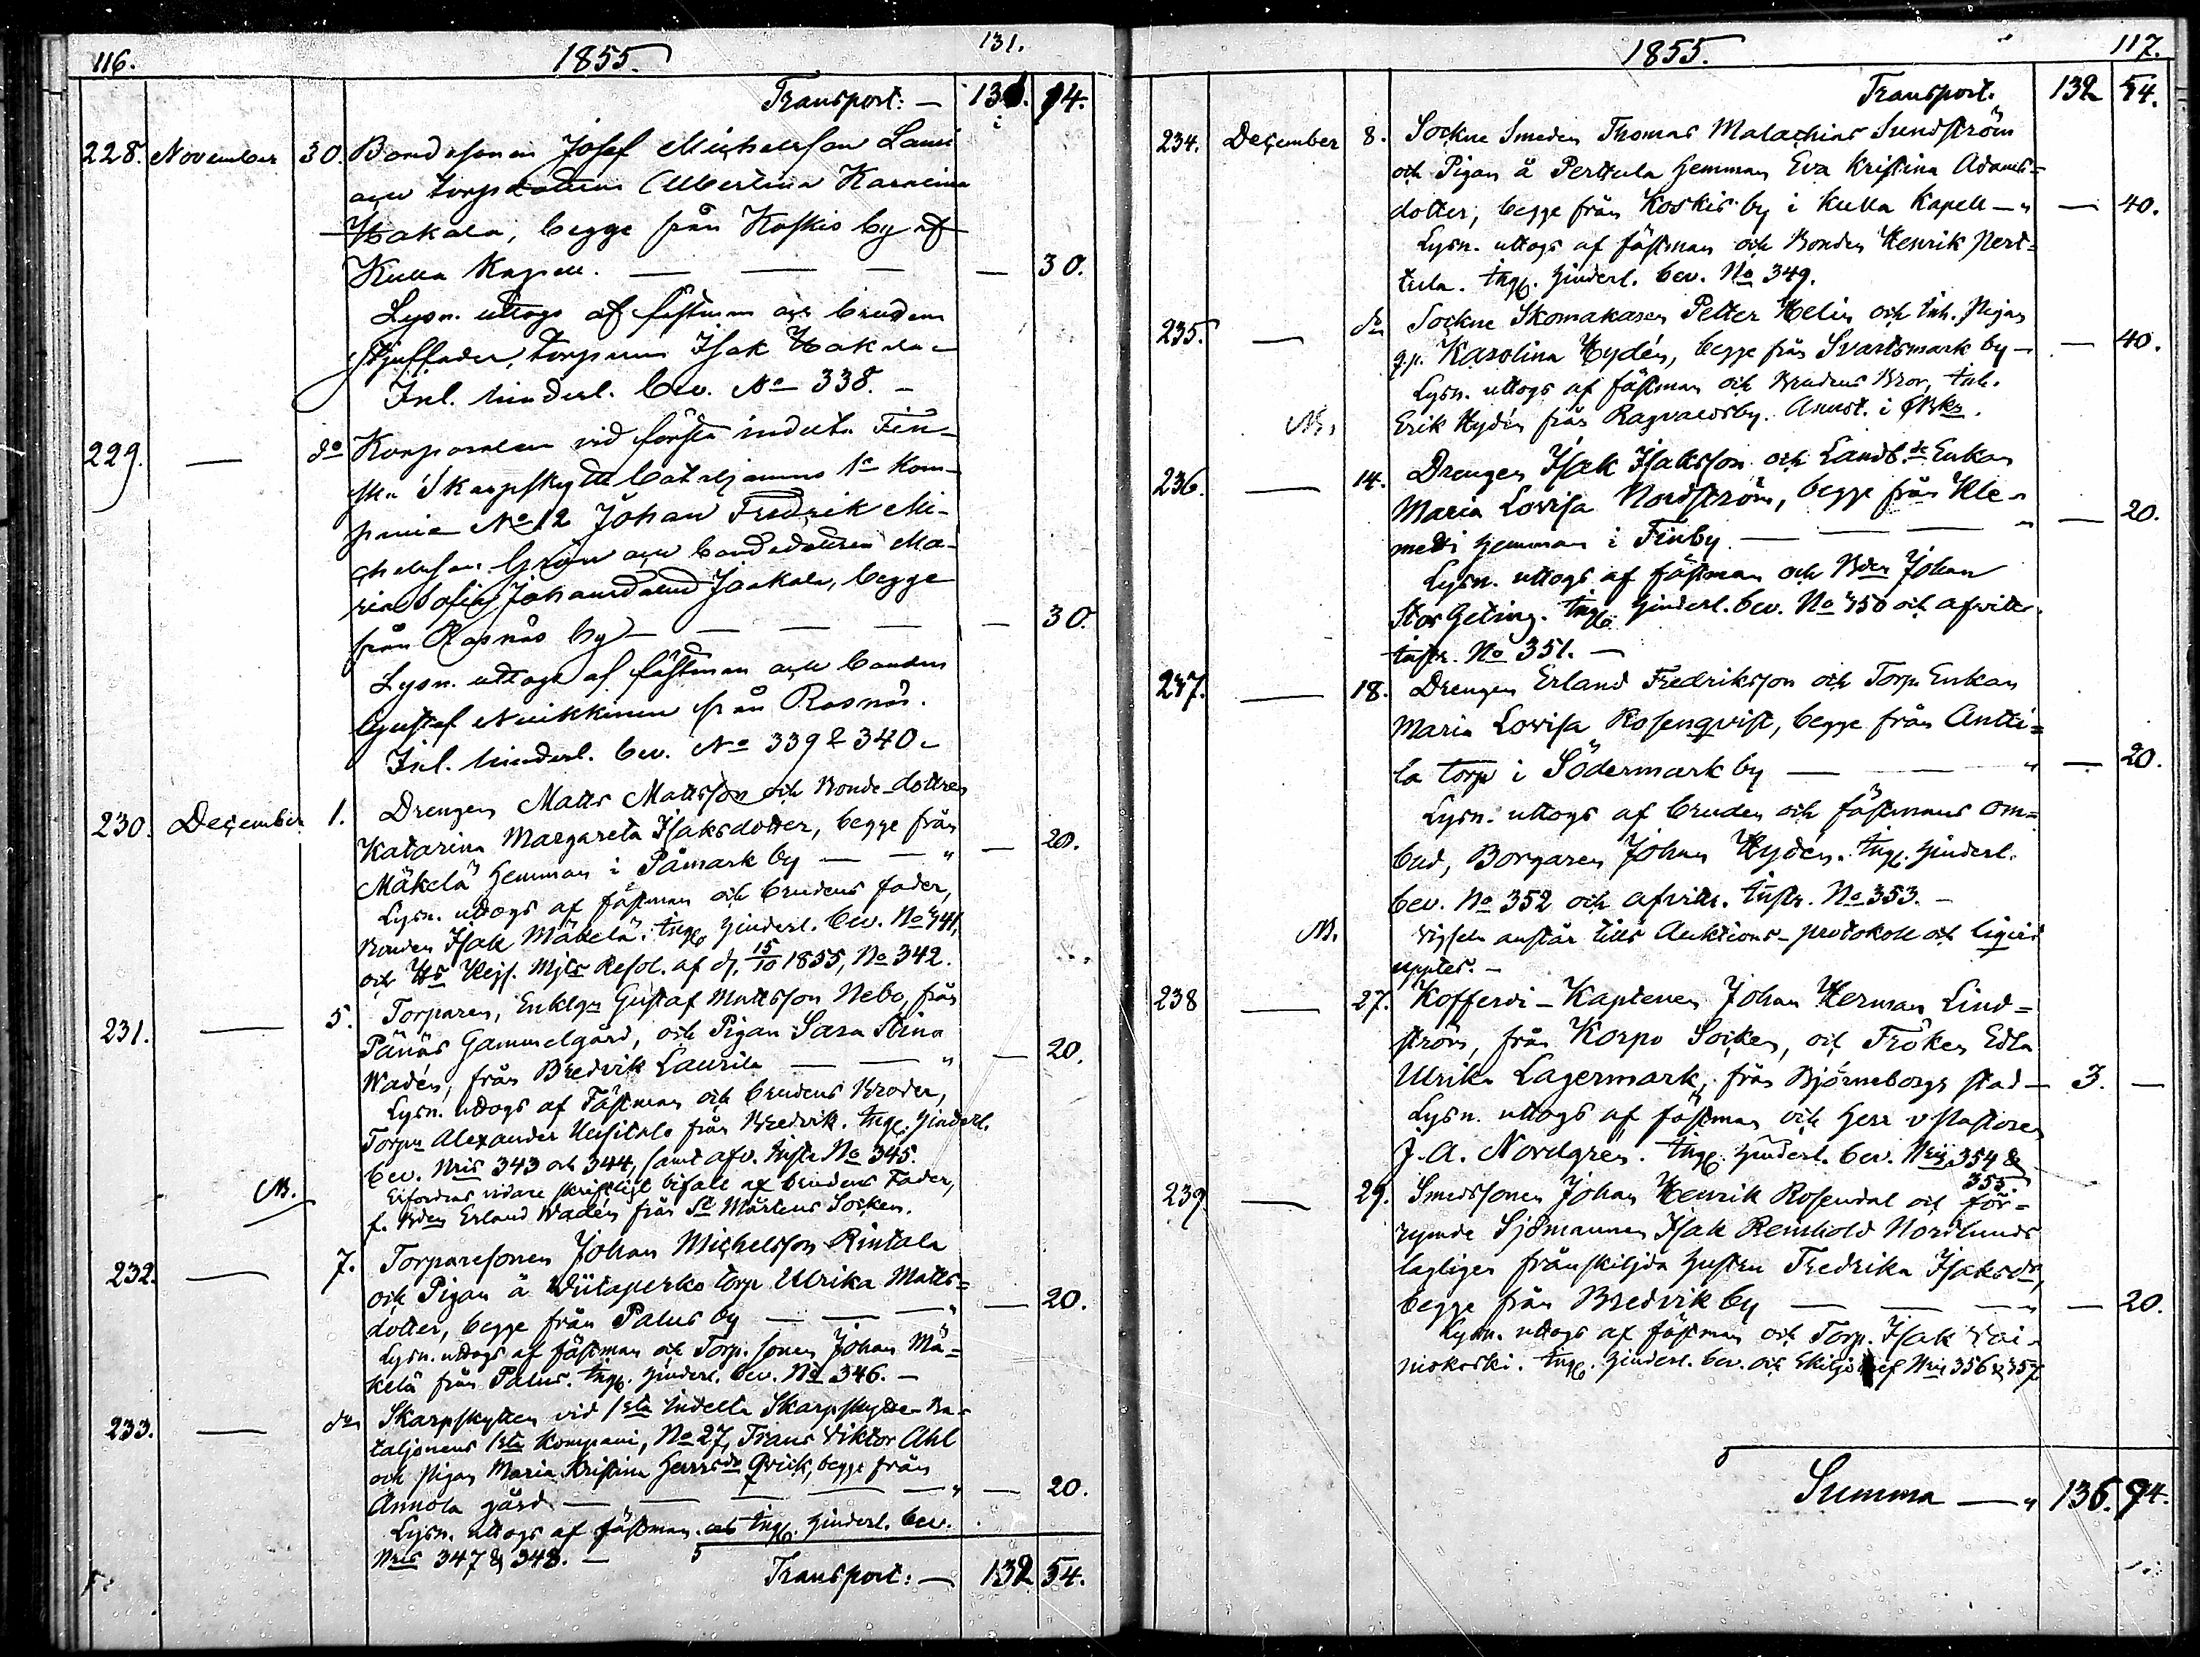 116. 1855. 131.
Transport: — 131. 14.
228. November 30. Bondesonen Josef Michelsson Lauri
och torpdottren Albertina Karolina
Hakala, begge från Koskis by af
Kulla Kapell. — — — — 30.
Lysn. uttogs af fästman och brudens
styffader, torparen Isak Hakala
Inl. hinderl. bev. No 338. —
229. — do Korporalen vid första indelta Fin-
ska Skarpskytte bataljonens 1a kom-
pani No 12 Johan Fredrik Mi-
chelsson Grön och bondedottren Ma-
ria Sofia Johansdotter Jaakola, begge
från Rosnäs by — — — — 30.
Lysn. uttogs af fästman och bonden
Gustaf Nuikkinen från Rosnäs.
Inl. hinderl. bev. No 339 & 340.
230. December 1. Drengen Matts Mattsson och Bonde-dottren
Katarina Margareta Isaksdotter, begge från
Mäkelä hemman i Påmark by — — " — 20.
Lysn. uttogs af fästman och brudens fader,
Bonden Isak Mäkelä. Ingg. hinderl. bev. No 341,
och Hs Kejs. Mjts Resol. af d. 15/10 1855, No 342.
231. — 5. Torparen, Enklgn Gustaf Mattsson Nebo, från
Pänäs Gammelgård, och Pigan Sara Stina
Wadén, från Bredvik Laurila — — " — 20.
Lysn. uttogs af Fästman och brudens Broder,
Torpn Alexander Uusitalo från Bredvik. Ingg. hinderl.
bev. Nris 343 och 344, samt afv. Instr No 345.
NB. Erfordras vidare skriftligt bifall af brudens Fader,
f. Bden Erland Wadén från St Mårtens Socken.
232. — 7. Torparesonen Johan Michelsson Rintala
och Pigan å Wiitaperko torp Ulrika Matts=
dotter, begge från Palus by — — — " — 20.
Lysn. uttogs af fästman och Torp. sonen Johan Mä=
kelä från Palus. Ingg. hinderl. bev. No 346. —
233. — don Skarpskytten vid 1sta Indelta Skarpskytte-Ba-
taljonens 1sta Kompani, No 27, Frans Viktor Ahl
och Pigan Maria Kristina Henrsdr Qvick, begge från
Annola gård — — — — — " — 20.
Lysn. uttogs af fästman. och Ingg. hinderl. bev.
Nris 347 & 348. —
Transport: — 132 54.
1855. 117.
Transport. 132 54.
234. December 8. Sockne Smeden Thomas Malachias Sundström
och Pigan å Perttula hemman Eva Kristina Adams=
dotter, begge från Koskis by i Kulla Kapell — " — 40.
Lysn. uttogs af fästman och Bonden Henrik Pert=
tula. Ingg. hinderl. bev. No 349.
235. — don Sockne Skomakaren Petter Helin och Inh. Pigan
g.p. Karolina Hydén, begge från Svartsmark by — — 40.
Lysn. uttogs af fästman och Brudens Bror, Inh.
NB. Erik Hydén från Ragvaldsby. Annot. i
236. — 14. Drengen Isak Isaksson och Landb.de Enkan
Maria Lovisa Nordström, begge från Kle-
metti hemman i Finby. — — — " — 20.
Lysn. uttogs af fästman och Bden Johan
Stor Geting. Ingg. hinderl. bev. No 350 och afvittr.
Instr. No 351. —
237. — 18. Drengen Erland Fredriksson och Torp. Enkan
Maria Lovisa Rosenqvist, begge från Antti=
la torp i Södermark by — — " — 20.
Lysn. uttogs af bruden och fästmans om=
bud, Borgaren Johan Hydén. Ingg. hinderl.
bev. No 352 och afvittr. Instr. No 353. —
NB. Vigseln anstår tills Auktions-protokoll och ligvid
upptes. —
238 — 27. Kofferdi-Kaptenen Johan Herman Lind=
ström, från Korpo Socken, och Fröken Edla
Ulrika Lagermark, från Björneborgs stad — 3. —
Lysn. uttogs af fästman och Herr vPastoren
J. A. Nordgren. Ingg. hinderl. bev. Nris 354 &
355.
239. — 29. Smedssonen Johan Henrik Rosendal och för=
rymde Sjömannen Isak Reinhold Nordlunds
lagligen frånskiljda hustru Fredrika Isaksdr,
begge från Bredvik by — — — " — 20.
Lysn. uttogs af fästman och Torp. Isak Vai-
niokoski. Ingg. hinderl. bev. och Skiljobref Nris 356 & 357
Summa — " 136. 94.